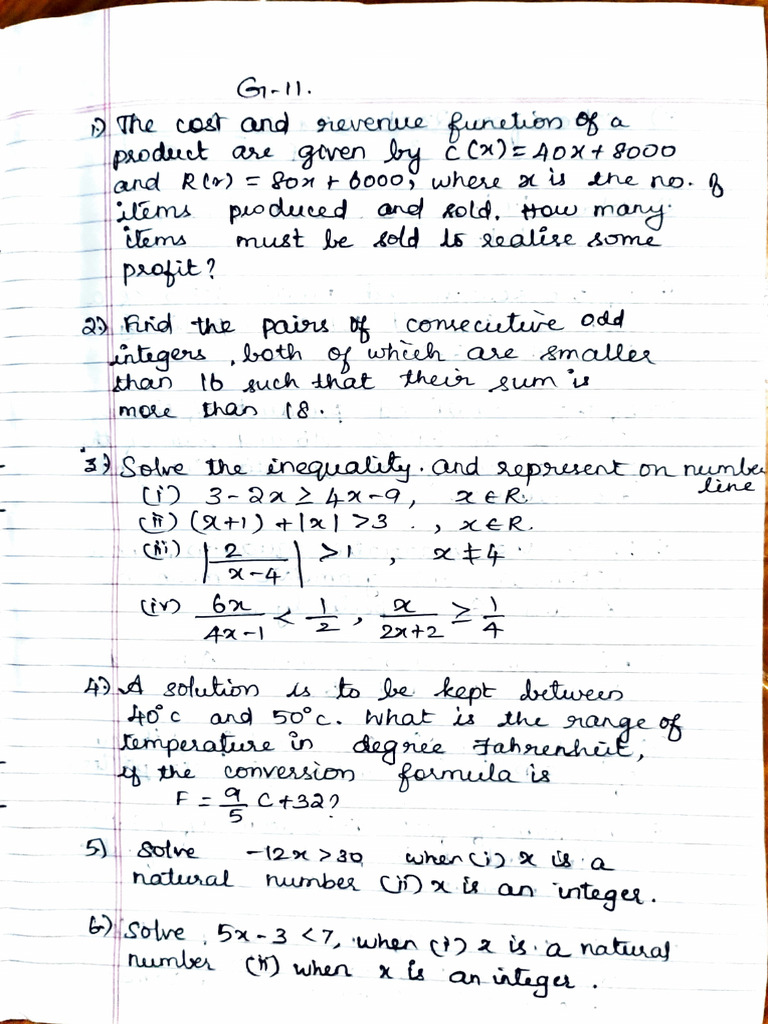 G-11.
1) The cost and revenue function of a
product are given by C(x) = 40x + 8000
and R(x) = 80x + 6000, where x is the no. of
items produced and sold. How many
items must be sold to realise some
profit?
2) Find the pairs of consecutive odd
integers, both of which are smaller
than 16 such that their sum is
more than 18.
3) Solve the inequality. and represent on number
line
(i) 3 - 2x ≥ 4x - 9, x ∈ R.
(ii) (x+1) + |x| > 3 , x ∈ R.
(iii) |2/(x-4)| > 1 , x ≠ 4
(iv) 6x/(4x-1) < 1/2 , x/(2x+2) ≥ 1/4
4) A solution is to be kept between
40°c and 50°c. What is the range of
temperature in degree Fahrenheit,
if the conversion formula is
F = 9/5 C + 32?
5) Solve -12x > 30, when (i) x is a
natural number (ii) x is an integer.
6) Solve, 5x - 3 < 7, when (i) x is a natural
number (ii) when x is an integer.